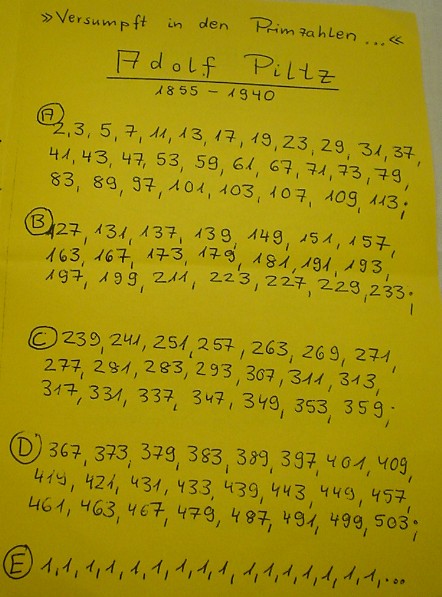 »Versumpft in den Primzahlen...«
Adolf Piltz
1855 – 1940
A 2, 3, 5, 7, 11, 13, 17, 19, 23, 29, 31, 37,
41, 43, 47, 53, 59, 61, 67, 71, 73, 79,
83, 89, 97, 101, 103, 107, 109, 113;
B 127, 131, 137, 139, 149, 151, 157,
163, 167, 173, 179, 181, 191, 193,
197, 199, 211, 223, 227, 229, 233;
C 239, 241, 251, 257, 263, 269, 271,
277, 281, 283, 293, 307, 311, 313,
317, 331, 337, 347, 349, 353, 359;
D 367, 373, 379, 383, 389, 397, 401, 409,
419, 421, 431, 433, 439, 443, 449, 457,
461, 463, 467, 479, 487, 491, 499, 503;
E 1, 1, 1, 1, 1, 1, 1, 1, 1, 1, 1, 1, 1, 1, 1, 1, ...